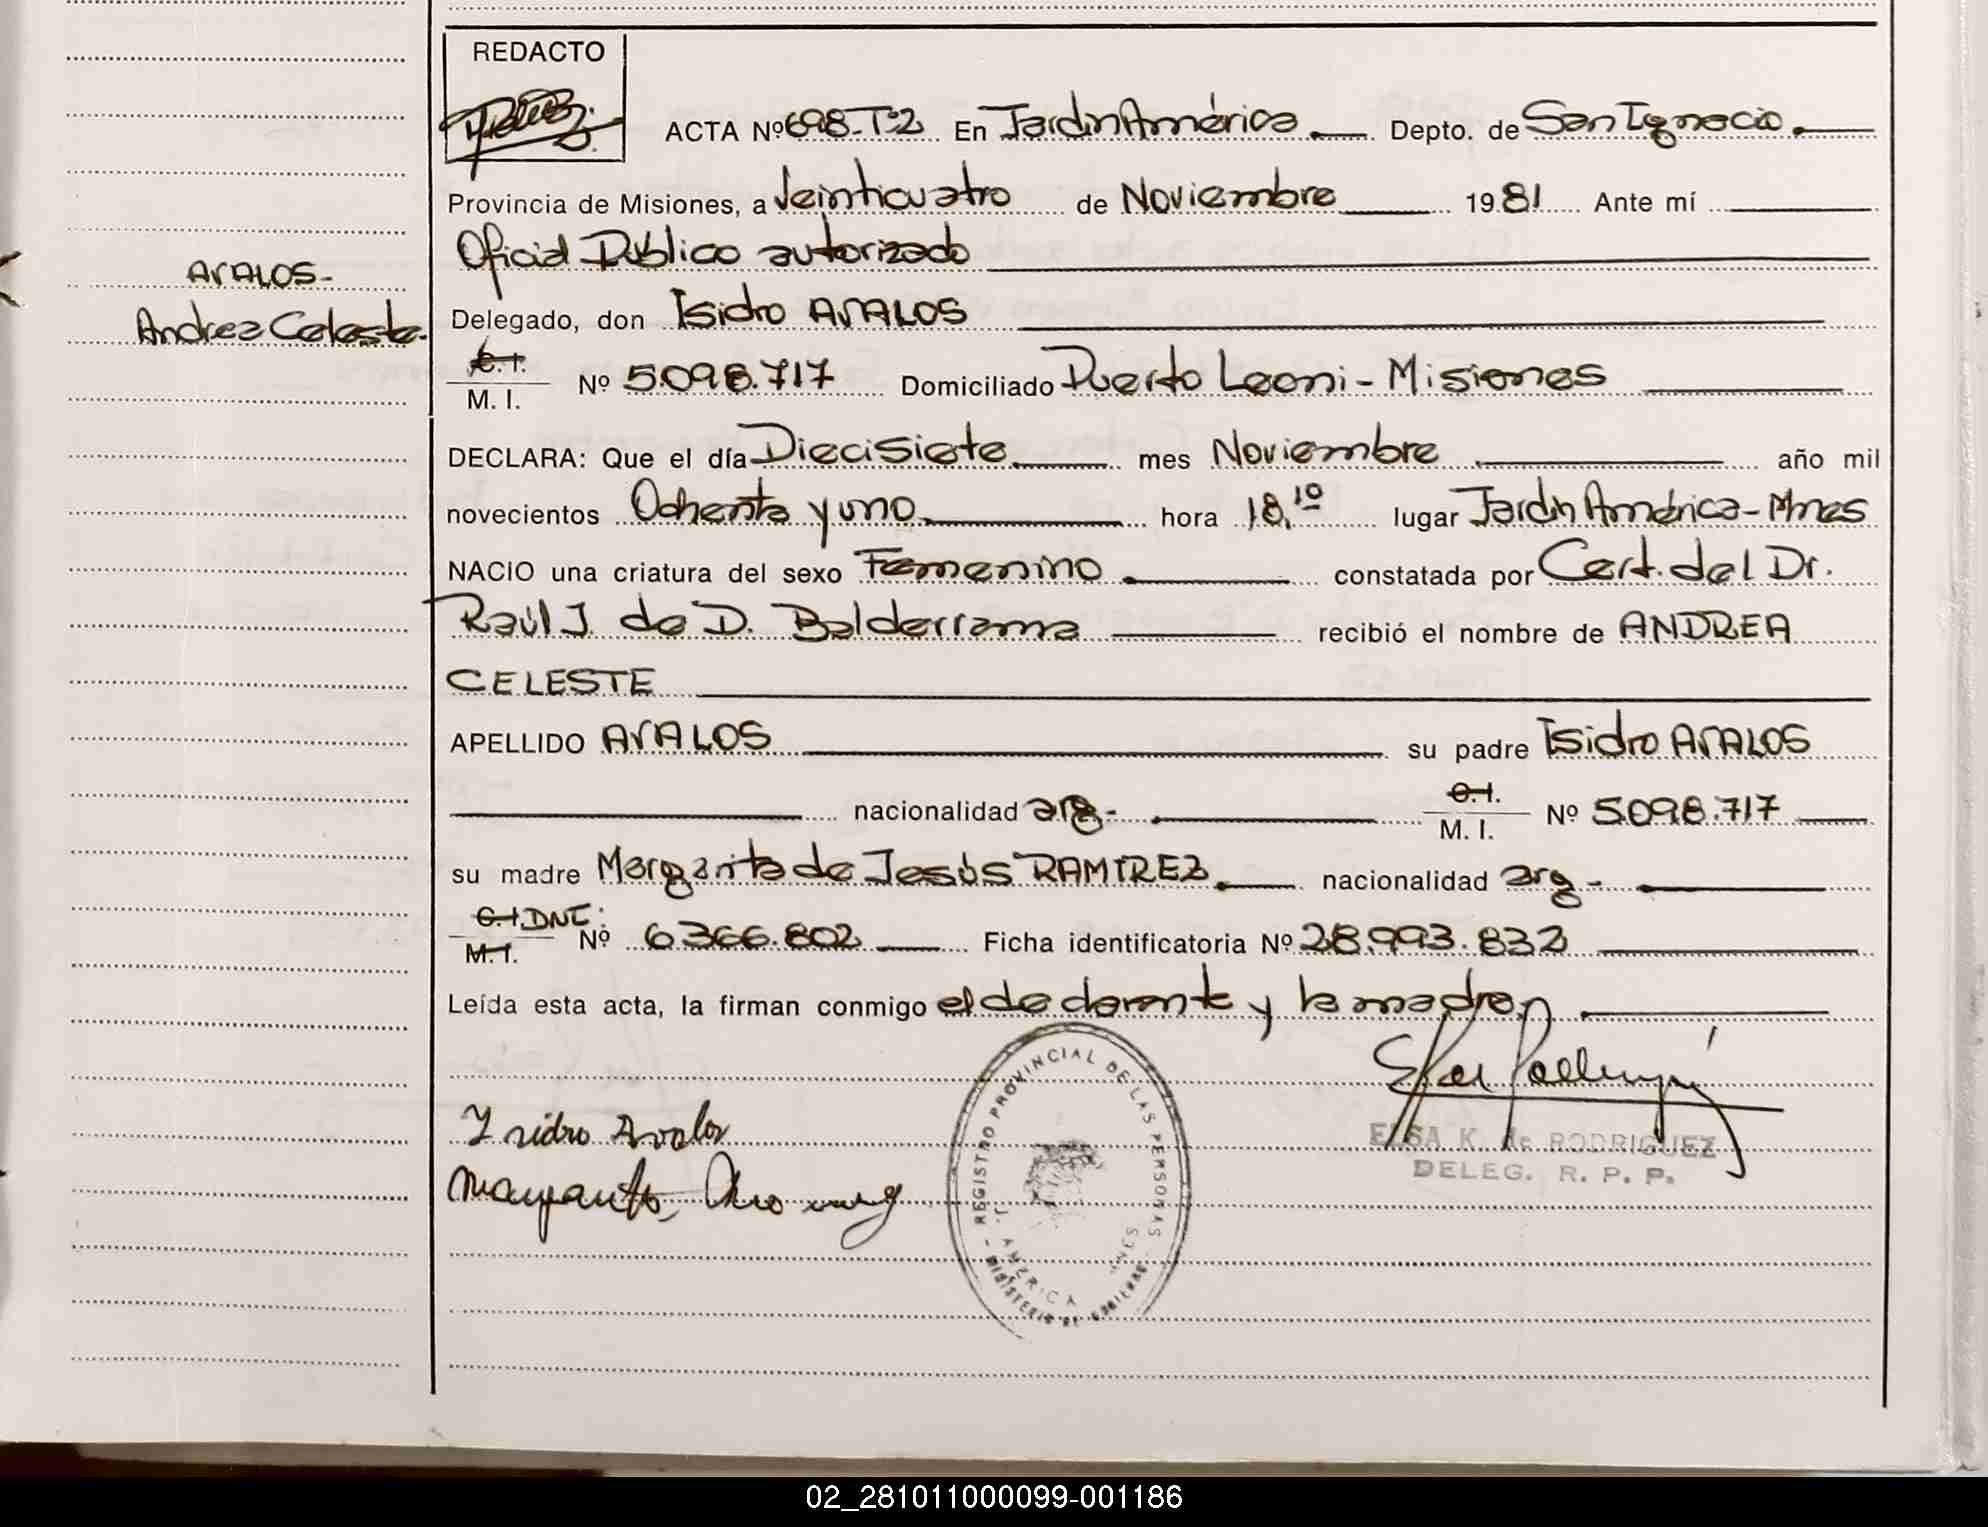 REDACTO
ACTA Nº 698-T:2 En Jardín América Depto. de San Ignacio
Provincia de Misiones, a Veinticuatro de Noviembre 1981 Ante mí
Oficial Público autorizado
AVALOS-
Andrea Celeste-
Delegado, don Isidro AVALOS
C.I. M. I. Nº 5.098.717 Domiciliado Puerto Leoni - Misiones
DECLARA: Que el día Diecisiete mes Noviembre año mil
novecientos Ochenta y uno hora 18,10 lugar Jardín América - Mnes
NACIO una criatura del sexo Femenino constatada por Cert. del Dr.
Raúl J. de D. Balderrama recibió el nombre de ANDREA
CELESTE
APELLIDO AVALOS su padre Isidro AVALOS
nacionalidad arg- C.I. M. I. Nº 5.098.717
su madre Margarita de Jesús RAMIREZ nacionalidad arg-
C.I. DNI: M.I. Nº 6.366.802 Ficha identificatoria Nº 28.993.832
Leída esta acta, la firman conmigo el declarante y la madre
Isidro Avalos
ELSA K. de RODRIGUEZ
DELEG. R. P. P.
REGISTRO PROVINCIAL DE LAS PERSONAS
J. AMERICA MNES
MINISTERIO DE GOBIERNO
02_281011000099-001186